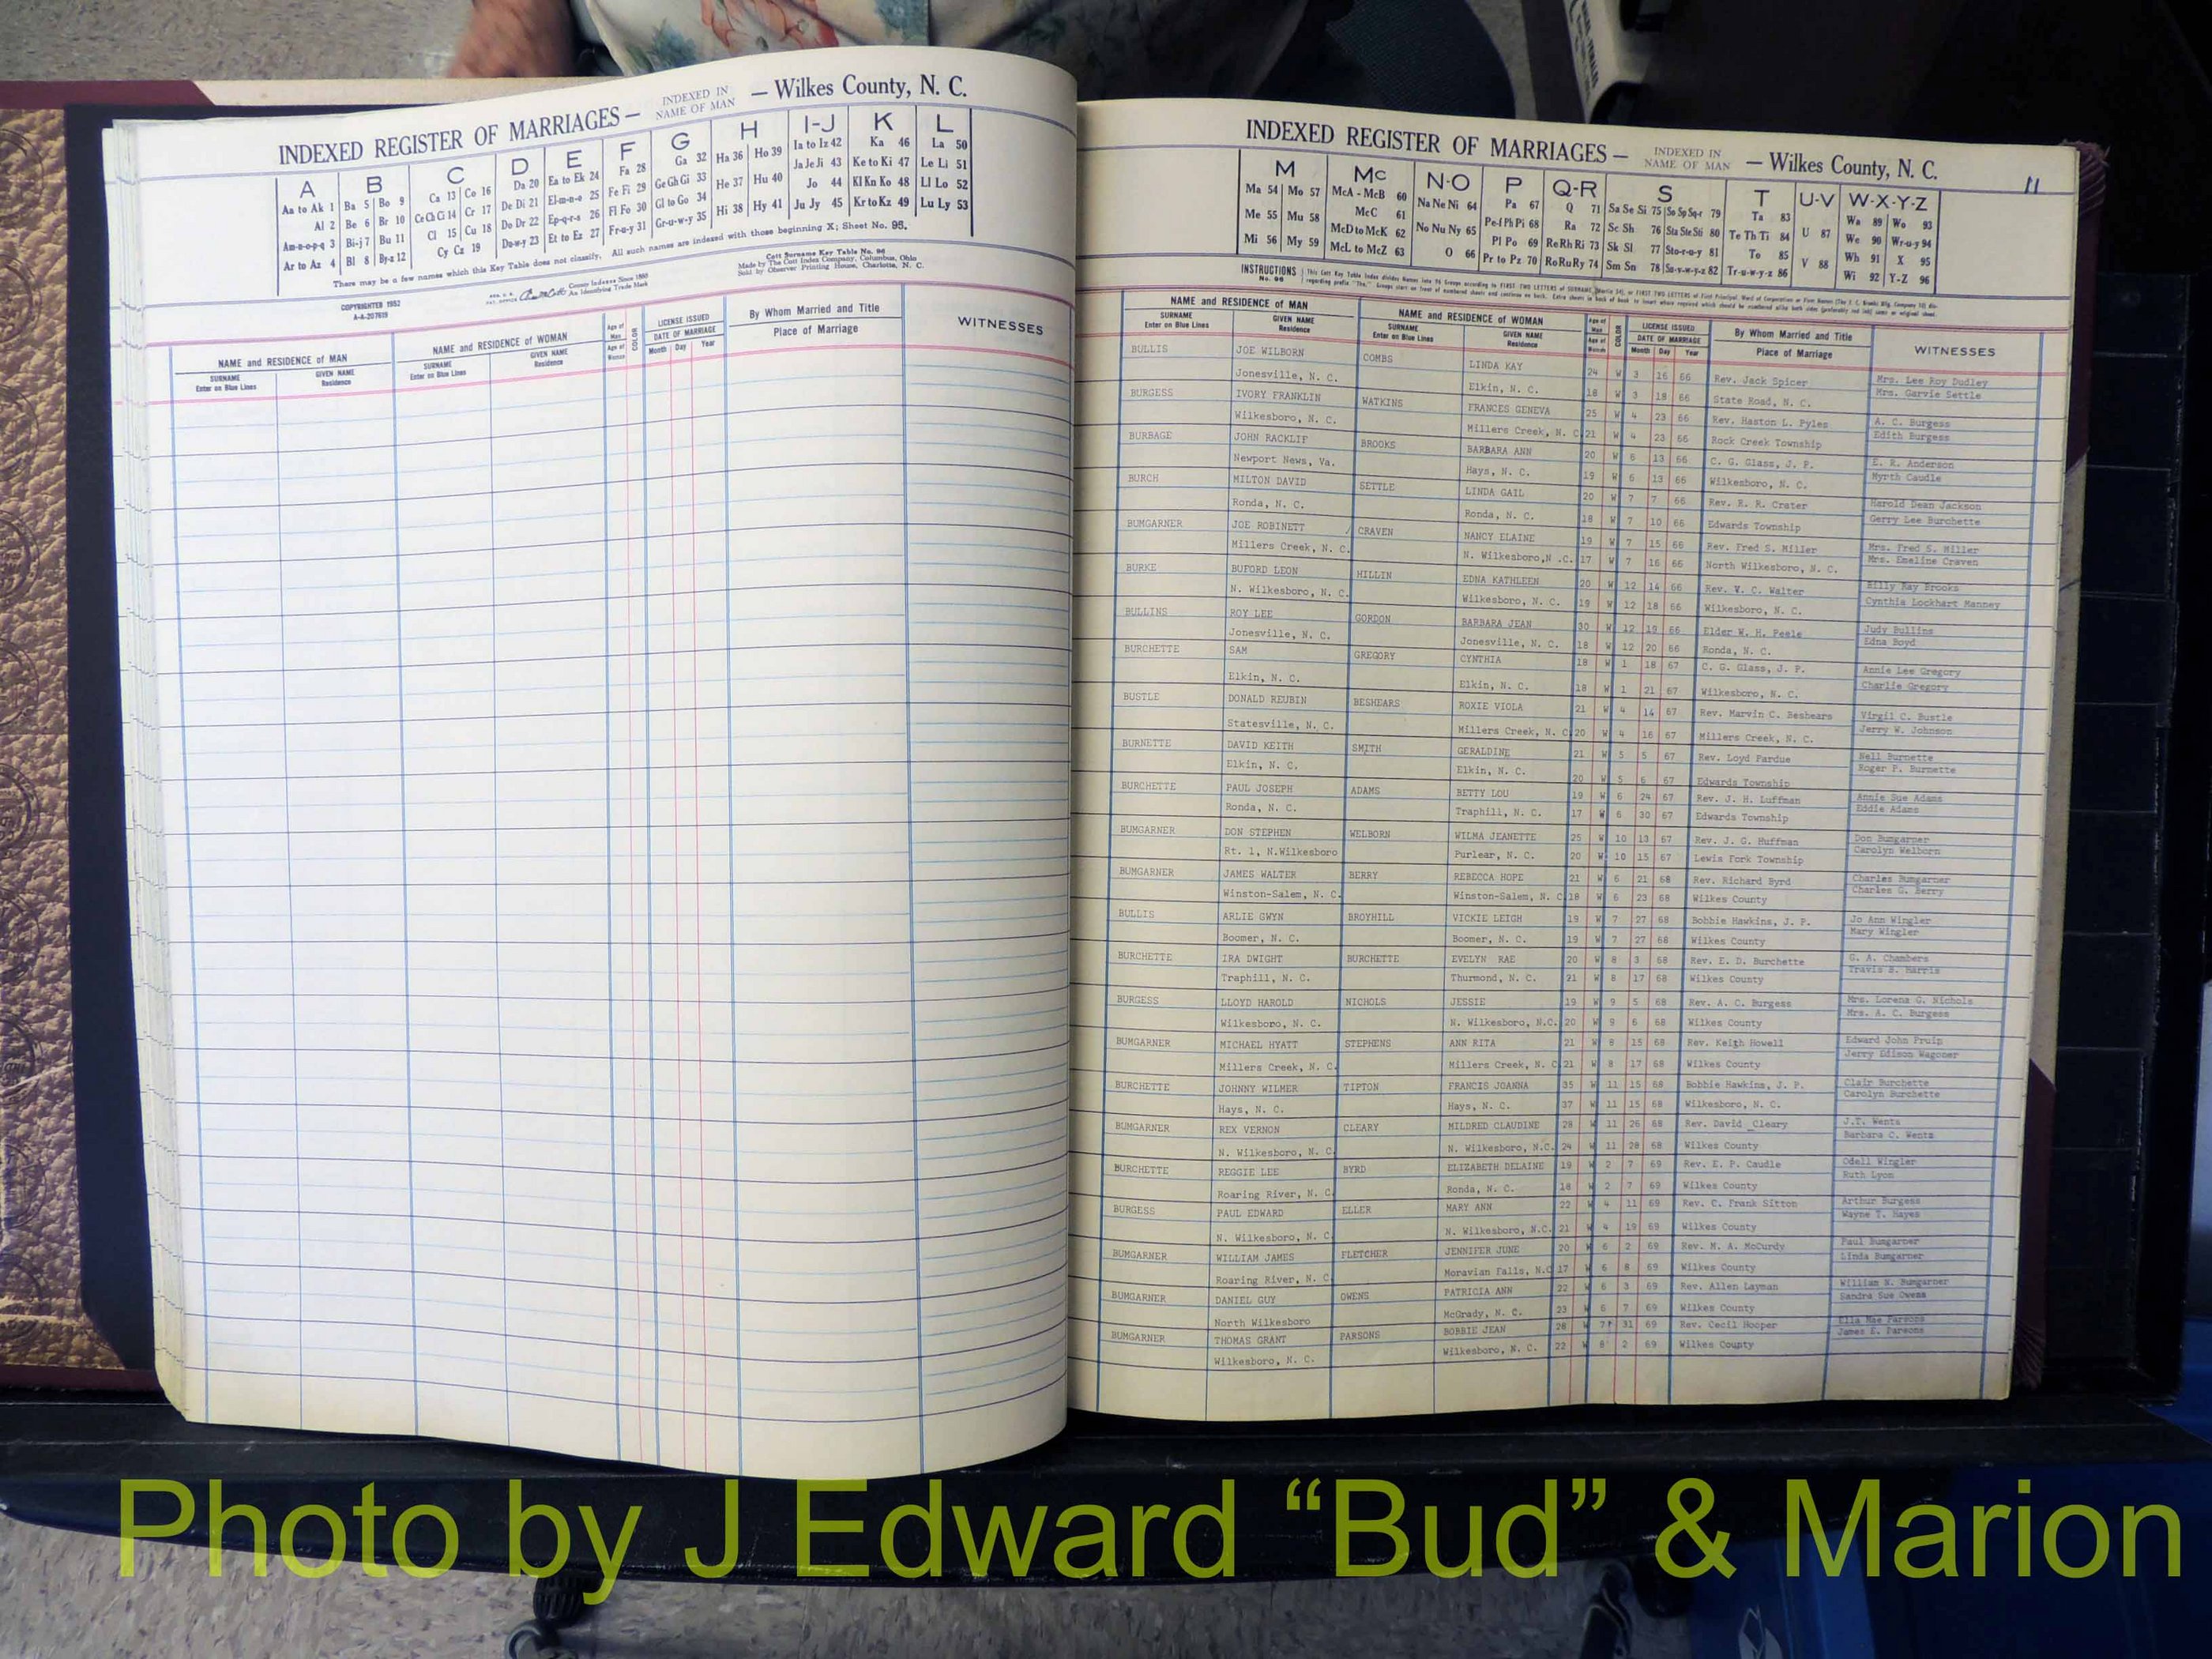 INDEXED REGISTER OF MARRIAGES — INDEXED IN NAME OF MAN — Wilkes County, N. C.
A B C D E F G H I-J K L
Aa to Ak 1 Ba 5 Bo 9 Ca 13 Co 16 Da 20 Ea to Ek 24 Fa 28 Ga 32 Ha 36 Ho 39 Ia to Iz 42 Ka 46 La 50
Al 2 Be 6 Br 10 Ce Ch Ci 14 Cr 17 De Di 21 El-m-n-o 25 Fe Fi 29 Ge Gh Gi 33 He 37 Hu 40 Ja Je Ji 43 Ke to Ki 47 Le Li 51
Am-n-o-p-q 3 Bi-j 7 Bu 11 Cl 15 Cu 18 Do Dr 22 Ep-q-r-s 26 Fl Fo 30 Gl to Go 34 Hi 38 Hy 41 Jo 44 Kl Kn Ko 48 Ll Lo 52
Ar to Az 4 Bl 8 By-z 12 Cy Cz 19 Du-w-y 23 Et to Ez 27 Fr-u-y 31 Gr-u-w-y 35 Ju Jy 45 Kr to Kz 49 Lu Ly 53
There may be a few names which this Key Table does not classify. All such names are indexed with those beginning X; Sheet No. 95.
COPYRIGHTED 1952
A-A-207619
County Indexes Since 1888
An Identifying Trade Mark
Cott Surname Key Table No. 96
Made by The Cott Index Company, Columbus, Ohio
Sold by Observer Printing House, Charlotte, N. C.
NAME and RESIDENCE of MAN NAME and RESIDENCE of WOMAN Age of Man Age of Woman COLOR LICENSE ISSUED DATE OF MARRIAGE By Whom Married and Title Place of Marriage WITNESSES
SURNAME Enter on Blue Lines GIVEN NAME Residence SURNAME Enter on Blue Lines GIVEN NAME Residence Month Day Year
INDEXED REGISTER OF MARRIAGES — INDEXED IN NAME OF MAN — Wilkes County, N. C. 11
M Mc N-O P Q-R S T U-V W-X-Y-Z
Ma 54 Mo 57 McA - McB 60 Na Ne Ni 64 Pa 67 Q 71 Sa Se Si 75 So Sp Sq-r 79 Ta 83 U 87 Wa 89 Wo 93
Me 55 Mu 58 McC 61 No Nu Ny 65 Pe-f Ph Pi 68 Ra 72 Sc Sh 76 Sta Ste Sti 80 Te Th Ti 84 V 88 We 90 Wr-u-y 94
Mi 56 My 59 McD to McK 62 O 66 Pl Po 69 Re Rh Ri 73 Sk Sl 77 Sto-r-u-y 81 To 85 Wh 91 X 95
McL to McZ 63 Pr to Pz 70 Ro Ru Ry 74 Sm Sn 78 Su-v-w-y-z 82 Tr-u-w-y-z 86 Wi 92 Y-Z 96
INSTRUCTIONS No. 96
NAME and RESIDENCE of MAN NAME and RESIDENCE of WOMAN Age of Man Age of Woman COLOR LICENSE ISSUED DATE OF MARRIAGE By Whom Married and Title Place of Marriage WITNESSES
SURNAME Enter on Blue Lines GIVEN NAME Residence SURNAME Enter on Blue Lines GIVEN NAME Residence Month Day Year
BULLIS JOE WILBORN COMBS LINDA KAY 24 W 3 16 66 Rev. Jack Spicer Mrs. Lee Roy Dudley
Jonesville, N. C. Elkin, N. C. 18 W 3 18 66 State Road, N. C. Mrs. Garvie Settle
BURGESS IVORY FRANKLIN WATKINS FRANCES GENEVA 25 W 4 23 66 Rev. Haston L. Pyles A. C. Burgess
Wilkesboro, N. C. Millers Creek, N. C. 21 W 4 23 66 Rock Creek Township Edith Burgess
BURBAGE JOHN RACKLIF BROOKS BARBARA ANN 20 W 6 13 66 C. G. Glass, J. P. E. R. Anderson
Newport News, Va. Hays, N. C. 19 W 6 13 66 Wilkesboro, N. C. Myrth Caudle
BURCH MILTON DAVID SETTLE LINDA GAIL 20 W 7 7 66 Rev. R. R. Crater Harold Dean Jackson
Ronda, N. C. Ronda, N. C. 18 W 7 10 66 Edwards Township Gerry Lee Burchette
BUMGARNER JOE ROBINETT CRAVEN NANCY ELAINE 19 W 7 15 66 Rev. Fred S. Miller Mrs. Fred S. Miller
Millers Creek, N. C. N. Wilkesboro,N .C. 17 W 7 16 66 North Wilkesboro, N. C. Mrs. Emeline Craven
BURKE BUFORD LEON HILLIN EDNA KATHLEEN 20 W 12 14 66 Rev. V. C. Walter Billy Ray Brooks
N. Wilkesboro, N. C. Wilkesboro, N. C. 19 W 12 18 66 Wilkesboro, N. C. Cynthia Lockhart Manney
BULLINS ROY LEE GORDON BARBARA JEAN 30 W 12 19 66 Elder W. H. Peele Judy Bullins
Jonesville, N. C. Jonesville, N. C. 18 W 12 20 66 Ronda, N. C. Edna Boyd
BURCHETTE SAM GREGORY CYNTHIA 18 W 1 18 67 C. G. Glass, J. P. Annie Lee Gregory
Elkin, N. C. Elkin, N. C. 18 W 1 21 67 Wilkesboro, N. C. Charlie Gregory
BUSTLE DONALD REUBIN BESHEARS ROXIE VIOLA 21 W 4 14 67 Rev. Marvin C. Beshears Virgil C. Bustle
Statesville, N. C. Millers Creek, N. C. 20 W 4 16 67 Millers Creek, N. C. Jerry W. Johnson
BURNETTE DAVID KEITH SMITH GERALDINE 21 W 5 5 67 Rev. Loyd Pardue Nell Burnette
Elkin, N. C. Elkin, N. C. 20 W 5 6 67 Edwards Township Roger P. Burnette
BURCHETTE PAUL JOSEPH ADAMS BETTY LOU 19 W 6 24 67 Rev. J. H. Luffman Annie Sue Adams
Ronda, N. C. Traphill, N. C. 17 W 6 30 67 Edwards Township Eddie Adams
BUMGARNER DON STEPHEN WELBORN WILMA JEANETTE 25 W 10 13 67 Rev. J. G. Huffman Don Bumgarner
Rt. 1, N.Wilkesboro Purlear, N. C. 20 W 10 15 67 Lewis Fork Township Carolyn Welborn
BUMGARNER JAMES WALTER BERRY REBECCA HOPE 21 W 6 21 68 Rev. Richard Byrd Charles Bumgarner
Winston-Salem, N. C. Winston-Salem, N. C. 18 W 6 23 68 Wilkes County Charles G. Berry
BULLIS ARLIE GWYN BROYHILL VICKIE LEIGH 19 W 7 27 68 Bobbie Hawkins, J. P. Jo Ann Wingler
Boomer, N. C. Boomer, N. C. 19 W 7 27 68 Wilkes County Mary Wingler
BURCHETTE IRA DWIGHT BURCHETTE EVELYN RAE 20 W 8 3 68 Rev. E. D. Burchette G. A. Chambers
Traphill, N. C. Thurmond, N. C. 21 W 8 17 68 Wilkes County Travis B. Harris
BURGESS LLOYD HAROLD NICHOLS JESSIE 19 W 9 5 68 Rev. A. C. Burgess Mrs. Lorena G. Nichols
Wilkesboro, N. C. N. Wilkesboro, N.C. 20 W 9 6 68 Wilkes County Mrs. A. C. Burgess
BUMGARNER MICHAEL HYATT STEPHENS ANN RITA 21 W 8 15 68 Rev. Keith Howell Edward John Pruip
Millers Creek, N. C. Millers Creek, N. C. 21 W 8 17 68 Wilkes County Jerry Edison Wagoner
BURCHETTE JOHNNY WILMER TIPTON FRANCIS JOANNA 35 W 11 15 68 Bobbie Hawkins, J. P. Clair Burchette
Hays, N. C. Hays, N. C. 37 W 11 15 68 Wilkesboro, N. C. Carolyn Burchette
BUMGARNER REX VERNON CLEARY MILDRED CLAUDINE 28 W 11 26 68 Rev. David Cleary J.T. Wentz
N. Wilkesboro, N. C. N. Wilkesboro, N.C. 24 W 11 28 68 Wilkes County Barbara C. Wentz
BURCHETTE REGGIE LEE BYRD ELIZABETH DELAINE 19 W 2 7 69 Rev. E. P. Caudle Odell Wingler
Roaring River, N. C. Ronda, N. C. 18 W 2 7 69 Wilkes County Ruth Lyon
BURGESS PAUL EDWARD ELLER MARY ANN 22 W 4 11 69 Rev. C. Frank Sitton Arthur Burgess
N. Wilkesboro, N. C. N. Wilkesboro, N.C. 21 W 4 19 69 Wilkes County Wayne T. Hayes
BUMGARNER WILLIAM JAMES FLETCHER JENNIFER JUNE 20 W 6 2 69 Rev. M. A. McCurdy Paul Bumgarner
Roaring River, N. C. Moravian Falls, N.C 17 W 6 8 69 Wilkes County Linda Bumgarner
BUMGARNER DANIEL GUY OWENS PATRICIA ANN 22 W 6 3 69 Rev. Allen Layman William N. Bumgarner
North Wilkesboro McGrady, N. C. 23 W 6 7 69 Wilkes County Sandra Sue Owens
BUMGARNER THOMAS GRANT PARSONS BOBBIE JEAN 28 W 7 31 69 Rev. Cecil Hooper Ella Mae Parsons
Wilkesboro, N. C. Wilkesboro, N. C. 22 W 8 2 69 Wilkes County James E. Parsons
Photo by J Edward “Bud” & Marion